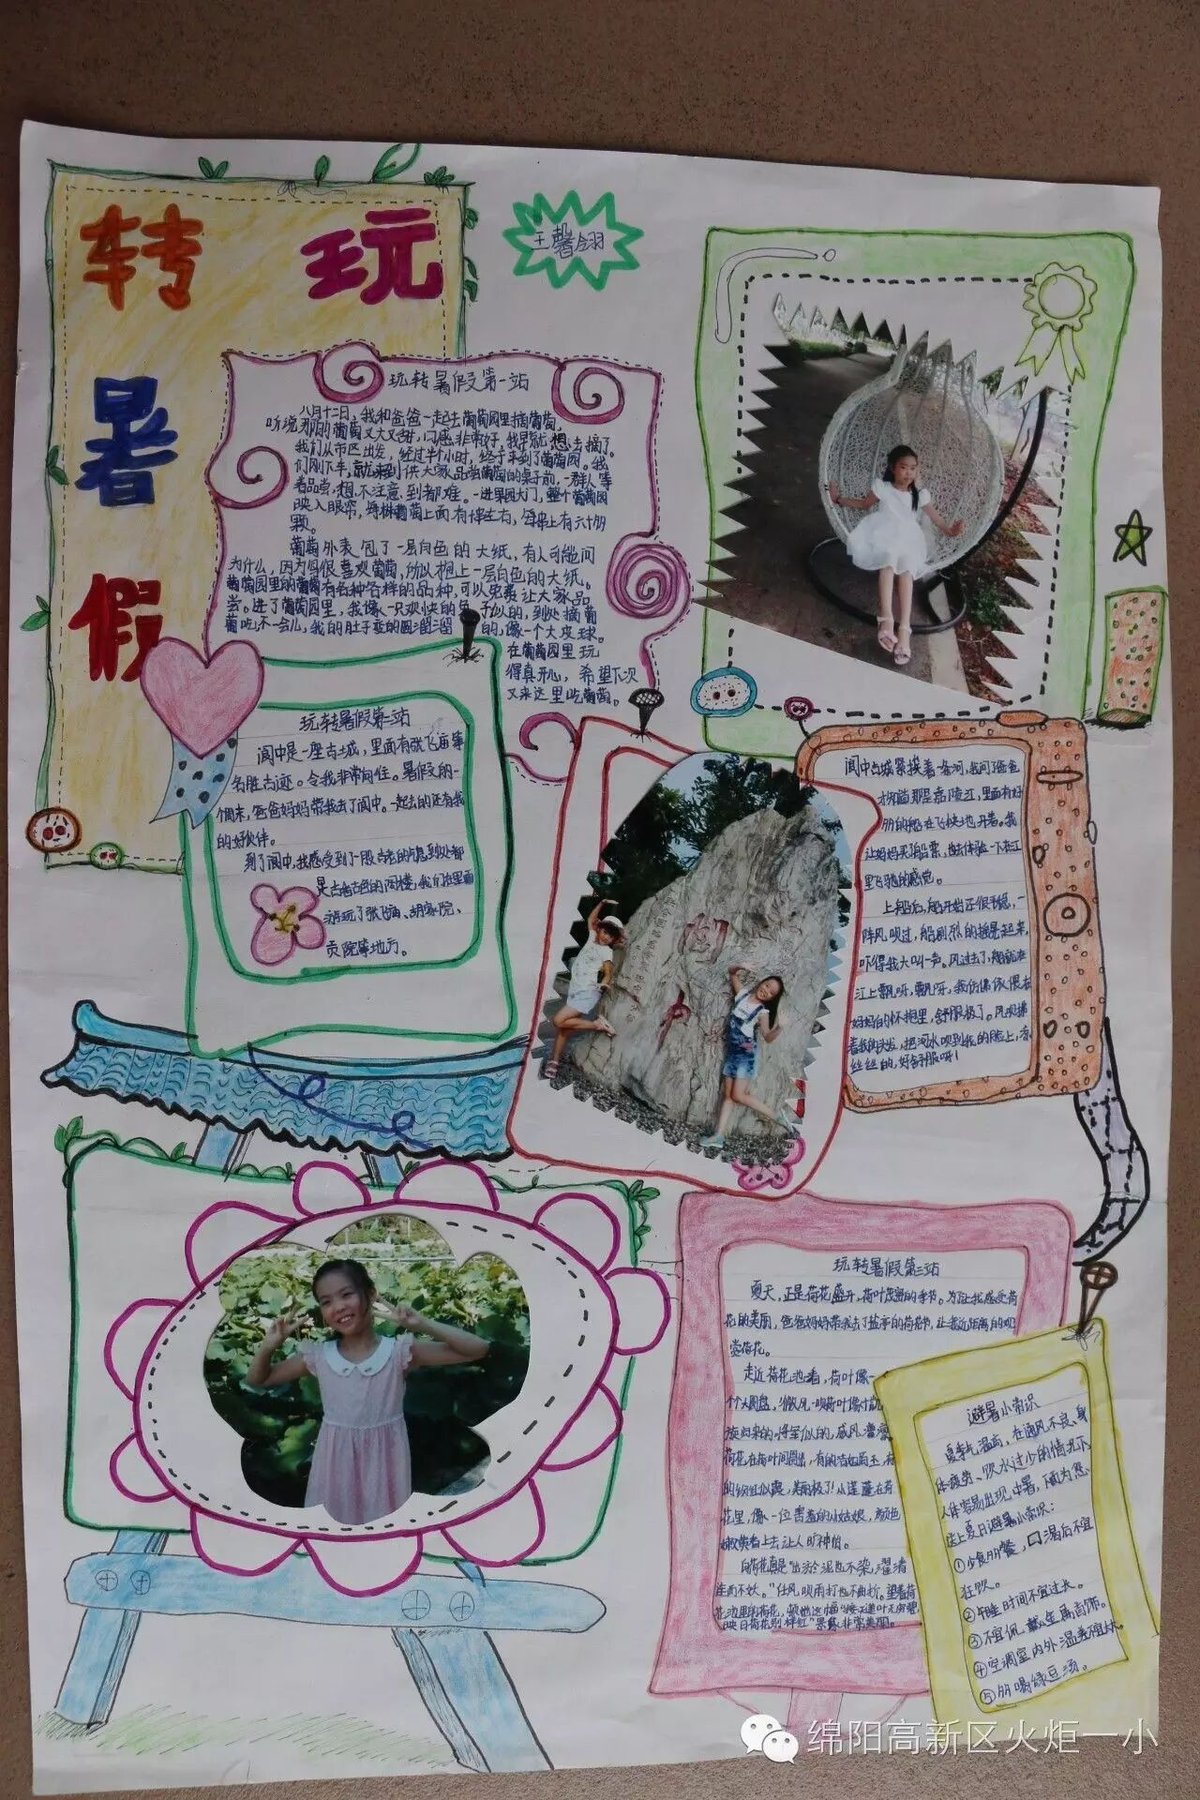 玩转
暑
假
王馨翎
玩转暑假第一站
八月十二日，我和爸爸一起去葡萄园里摘葡萄，
听说那的葡萄又大又甜，口感非常好，我早就想去摘了。
我们从市区出发，经过半个小时，终于来到了葡萄园。我
们刚下车，就来到供大家品尝葡萄的桌子前，一群人等
着品尝，想不注意到都难。一进果园大门，整个葡萄园
映入眼帘，每树葡萄上面有
颗。
葡萄外表包了一层白色的大纸，有人可能问
为什么，因为鸟很喜欢葡萄，所以抱上一层白色的大纸。
葡萄园里的葡萄有各种各样的品种，可以免费让大家品
尝。进了葡萄园里，我像一只欢快的兔子似的，到处摘葡
萄吃，不一会儿，我的肚子变的圆溜溜的，像一个大皮球。
在葡萄园里玩
得真开心，希望下次
又来这里吃葡萄。
玩转暑假第二站
阆中是一座古城，里面有张飞庙等
名胜古迹。令我非常向往。暑假的一
个周末，爸爸妈妈带我去了阆中。一起去的还有我
的好伙伴。
到了阆中，我感受到了一股古老的气息到处都
是古香古色的阁楼，我们在里面
游玩了张飞庙、胡家院、
贡院等地方。
阆中古城紧挨着一条河，我问了爸爸
才知道那是嘉陵江，里面有好
多的船在飞快地开着。我
让妈妈买了船票，也去体验一下在江
里飞驰的感觉。
上船后，船开始还很平稳，一
阵风吹过，船剧烈的摇晃起来，
吓得我大叫一声。风过去了，船就在
江上飘呀，飘呀，我仿佛依偎在
妈妈的怀抱里，舒服极了。风吹拂
着我的头发，把河水吹到我的脸上，凉
丝丝的，好舒服呀！
玩转暑假第三站
夏天，正是荷花盛开，荷叶茂密的季节。为了让我感受荷
花的美丽，爸爸妈妈带我去了盐亭的荷花节，让我近距离的观
赏荷花。
走近荷花池看，荷叶像一
个个大圆盘，微风一吹荷叶像打了
旋归来的将军似的，威风凛凛
荷花在荷叶间露出，有的洁如白玉，有
的粉红似霞，美丽极了！小莲蓬在荷
花里，像一位害羞的小姑娘，颜色
嫩黄看上去让人心旷神怡。
荷花真是“出淤泥而不染，濯清
涟而不妖。”任风吹雨打也不曲折。望着荷
花池里的荷花，顿觉这幅“接天莲叶无穷碧，
映日荷花别样红”景象非常美丽。
避暑小常识
夏季气温高，在通风不良、身
体疲劳、饮水过少的情况下，
人体容易出现中暑，下面为您
送上夏日避暑小常识：
①少食多餐，口渴后不宜
狂饮。
②午睡时间不宜过长。
③不宜佩戴金属首饰。
④空调室内外温差不宜太大。
⑤多喝绿豆汤。
绵阳高新区火炬一小